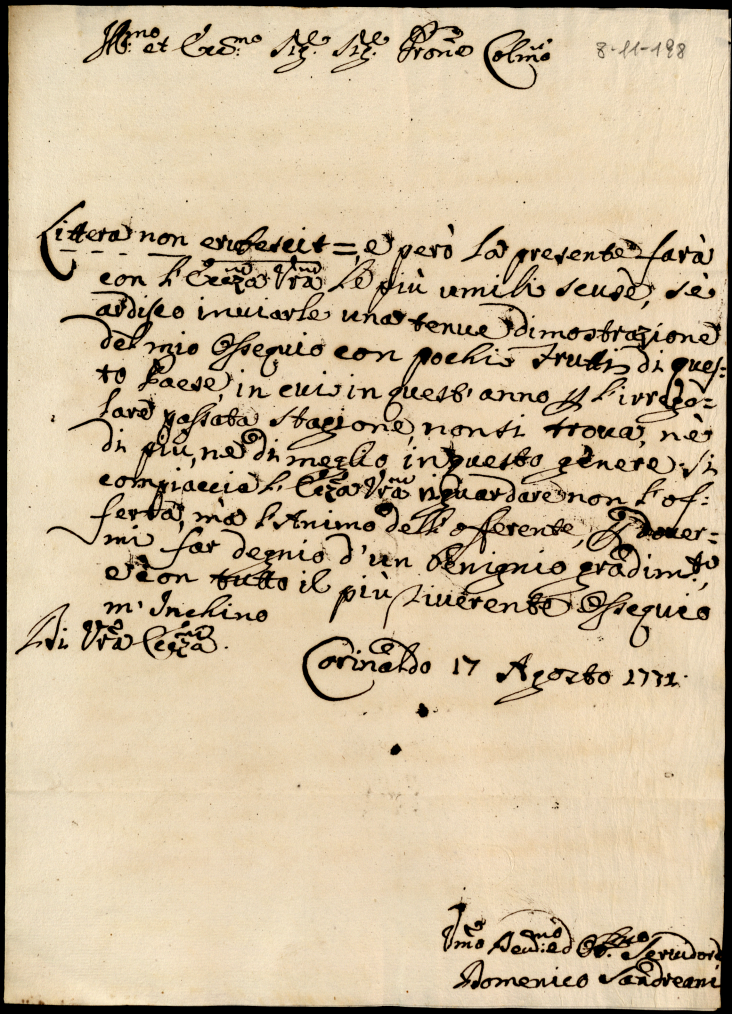 Ill:mo et Ecc:mo Sig.e Sig.e Prone Colmo
8-11-198
Littera non erubescit = e però la presente farà
con l'Eccza Vra le più umili scuse, se
ardisco inviarle una tenue dimostrazione
del mio Ossequio con pochi frutti di ques-
to Paese, in cui in quest'anno p l'irrego=
lare passata stagione, non si trova, nè
di più, nè di meglio in questo genere. Si
compiaccia l'Eccza Vra riguardare non l'of-
ferta, mà l'Animo dell'offerente, p dover=
mi far degnio d'un benignio gradimto,
e con tutto il più riverente Ossequio
m'Inchino
Di Vra Eccza.
Corinaldo 17 Agosto 1771.
Umo Devmo ed Obb:mo Servidore
Domenico Sandreani